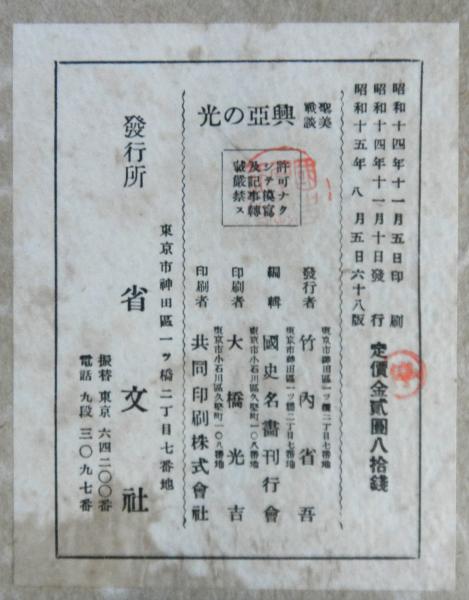 昭和十四年十一月五日印刷
昭和十四年十一月十日發行
昭和十五年八月五日六十八版
定價金貳圓八拾錢
聖戰
美談
興亞の光
許可ナク
シテ模寫
及記事轉
載嚴禁ス
東京市神田區一ツ橋二丁目七番地
發行者 竹內省吾
東京市神田區一ツ橋二丁目七番地
編輯 國史名畫刊行會
東京市小石川區久堅町一〇八番地
印刷者 大橋光吉
東京市小石川區久堅町一〇八番地
印刷者 共同印刷株式會社
東京市神田區一ツ橋二丁目七番地
發行所 省文社
振替 東京 六四二〇〇番
電話 九段 三〇九七番